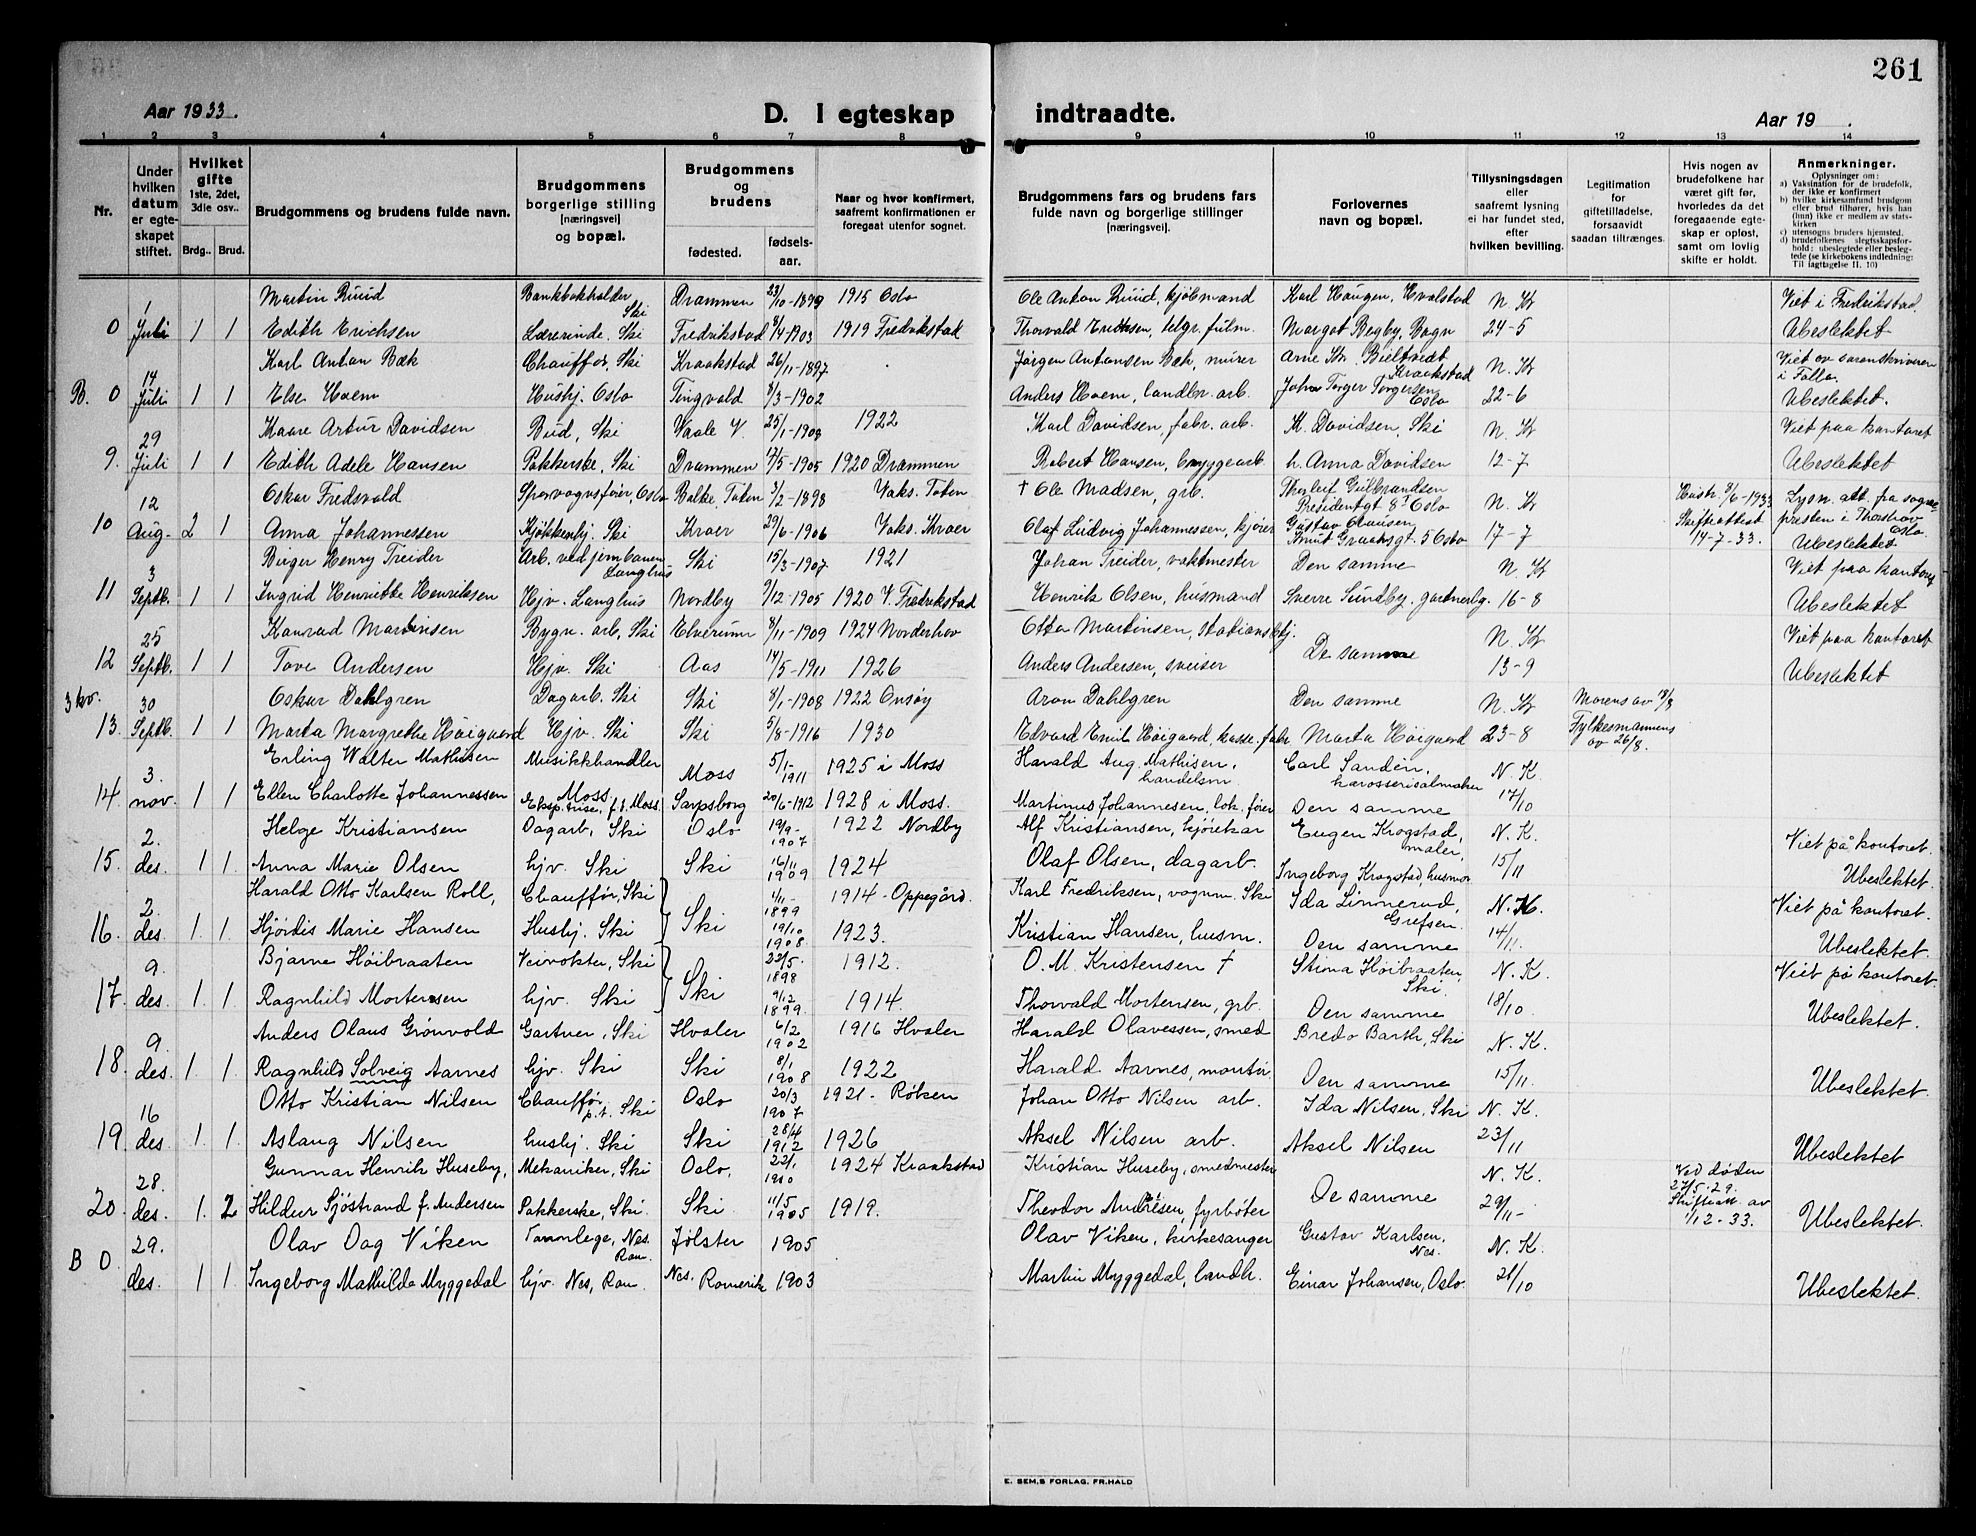 261
Aar 1933. D. I egteskap indtraadte. Aar 19 .
1 2 3 4 5 6 7 8 9 10 11 12 13 14
Nr.
Under hvilken datum er egteskapet stiftet.
Hvilket gifte 1ste, 2det, 3die osv.. Brdg.. Brud.
Brudgommens og brudens fulde navn.
Brudgommens borgerlige stilling (næringsvei) og bopæl.
Brudgommens og brudens fødested. fødselsaar.
Naar og hvor konfirmert, saafremt konfirmationen er foregaat utenfor sognet.
Brudgommens fars og brudens fars fulde navn og borgerlige stillinger (næringsvei).
Forlovernes navn og bopæl.
Tillysningsdagen eller saafremt lysning ei har fundet sted, efter hvilken bevilling.
Legitimation for giftetilladelse, forsaavidt saadan tiltrænges.
Hvis nogen av brudefolkene har været gift før, hvorledes da det foregaaende egteskap er opløst, samt om lovlig skifte er holdt.
Anmerkninger.
Oplysninger om:
a) Vaksination for de brudefolk, der ikke er konfirmert
b) hvilke kirkesamfund brudgom eller brud tilhører, hvis han (hun) ikke er medlem av statskirken
c) utensogns bruders hjemsted.
d) brudefolkenes slegtsskapsforhold: ubeslegtede eller beslegtede (se kirkebokens indledning: Til iagttagelse II. 10)
1 Martin Ruud Bankbokholder Ski Drammen 23/10-1899 1915 Oslo Ole Anton Ruud, kjöbmand Karl Haugen, Hvalstad N. K. Viet i Fredrikstad.
0 Juli 1 1 Edith Erichsen Lærerinde, Ski Fredrikstad 8/4-1903 1919 Fredrikstad Thorvald Erichsen, telgr. fulm. Margot Begby, Bagn 24-5 Ubeslektet
14 Karl Anton Bæk Chauffør, Ski Kraakstad 26/11-1897 Jörgen Antonsen Bæk, murer Arne Kr. Bieltvedt Kraakstad N. Kr Viet av sorenskriveren i Follo.
B. 0 Juli 1 1 Else Hoem Hushj. Oslo Tingvold 8/3-1902 Anders Hoem, landbr. arb. Johan Torger Torgersen Oslo 22-6 Ubeslektet.
29 Kaare Artur Davidsen Bud, Ski Vaale V. 25/1-1908 1922 Karl Davidsen, fabr. arb. K. Davidsen, Ski N. Kr Viet paa kontoret
9. Juli 1 1 Edith Adele Hansen Pakkerske, Ski Drammen 17/5-1905 1920 Drammen Robert Hansen, bryggearb. h. Anna Davidsen 12-7 Ubeslektet
12 Oskar Fredsvold Sporvognsfører, Oslo Balke, Toten 3/2-1898 Vaks. Toten † Ole Madsen, grb. Thorleif Gulbrandsen Presidentgt 8 Oslo N. Kr Hustr. 8/6-1933 Lysn. att. fra sogne
10 Aug. 2 1 Anna Johannessen Kjökkenhj. Ski Kroer 29/6-1906 Vaks. Kroer Olaf Ludvig Johannessen, kjörer Gustav Clausen Knut Graahsgt. 5 Oslo 17-7 Skifteattest 14-7-33. presten i Thorshov Oslo Ubeslektet
3 Birger Henry Treider Arb. ved jernbanen Langhus Ski 15/3-1907 1921 Johan Treider, vaktmester Den samme N. Kr Viet paa kontoret
11 Septb. 1 1 Ingrid Henriette Henriksen Hjv. Langhus Nordby 9/12-1905 1920 V. Fredrikstad Henrik Olsen, husmand Sverre Sundby, gartnerlg. 16-8 Ubeslektet
25 Konrad Martinsen Bygn. arb, Ski Elverum 8/11-1909 1924 Norderhov Otto Martinsen, stationsbtj. De samme N. Kr Viet paa kontoret
12 Septb. 1 1 Tove Andersen Hjv. Ski Aas 14/5-1911 1926 Anders Andersen, sveiser 13-9 Ubeslektet
3 kv. 30 Oskar Dahlgren Dagarb. Ski Ski 8/1-1908 1922 Onsøy Aron Dahlgren Den samme N. Kr Morens av 18/8
13. Septb. 1 1 Marta Margrethe Höigaard Hjv. Ski Ski 5/8-1916 1930 Edvard Emil Höigaard, kasse. fabr Marta Höigaard 23-8 Fylkesmannens av 26/8.
3. Erling Walter Mathisen Musikkhandler Moss 5/1-1911 1925 i Moss Harald Aug. Mathisen, handelsm Carl Sandén, karosserisalmaker N. K.
14 nov. 1 1 Ellen Charlotte Johannessen Eksp. trise, f.t. Moss. Moss Sarpsborg 20/6-1912 1928 i Moss. Martinus Johannesen, lok. fører Den samme 17/10
2. Helge Kristiansen Dagarb, Ski Oslo 19/9-1907 1922 Nordby Alf Kristiansen, kjørekar Eugen Krogstad, maler, N. K. Viet på kontoret.
15. des. 1 1 Anna Marie Olsen hjv. Ski Ski 16/11 1909 1924 Olaf Olsen, dagarb. Ingeborg Krogstad, husmor 15/11 Ubeslektet.
2. Harald Otto Karlsen Roll, Chauffør, Ski Ski 1/11-1899 1914 - Oppegård. Karl Fredriksen, vognm. Ski Ida Linnerud, Grefsen. N. K. Viet på kontoret.
16. des. 1 1. Hjørdis Marie Hansen Hushj. Ski 19/10 1908 1923. Kristian Hansen, husm. Den samme 14/11. Ubeslektet.
9. Bjarne Høibraaten Veivokter, Ski Ski 22/5. 1898 1912. O. M. Kristensen † Stina Høibraaten, Ski. N. K. Viet på kontoret.
17 des. 1. 1. Ragnhild Mortensen hjv. Ski 9/12 1899. 1914 Thorvald Mortensen, grb. Den samme 18/10. Ubeslektet.
9. Anders Olaus Grønvold Gartner, Ski Hvaler 6/2 1902 1916 Hvaler Harald Olavessen, smed Bredo Barth, Ski N. K.
18. des. 1. 1. Ragnhild Solveig Aarnes hjv. Ski Ski 8/1 1908 1922 Harald Aarnes, montør. Den samme 15/11. Ubeslektet.
16 Otto Kristian Nilsen Chauffør p.t. Ski Oslo 20/3 1907 1921 - Røken Johan Otto Nilsen arb. Ida Nilsen, Ski N. K.
19. des. 1. 1. Aslaug Nilsen hushj. Ski Ski 28/4 1912 1926 Aksel Nilsen arb. Aksel Nilsen 23/11 Ubeslektet
28. Gunnar Henrik Huseby, Mekaniker, Ski Oslo, 22/1 1910 1924 Kraakstad Kristian Huseby, smedmester De samme N. K. Ved døden 27/5-29.
20. des. 1. 2 Hildur Sjöstrand f. Andersen Pakkerske, Ski. Ski 11/5 1905 1919. Theodor Andresen, fyrbøter 29/11- Skifteatt. av 1/12-33. Ubeslektet.
29. Olav Dag Viken Tannlege, Nes. Rom. Jølster 1905 Olav Viken, kirkesanger Gustav Karlsen, Nes. N. K.
B 0. des. 1 1. Ingeborg Mathilda Myggedal hjv. Nes, Rom. Nes. Romerik 1903 Martin Myggedal, landh. Einar Johansen, Oslo. 21/10 Ubeslektet.
E. SEM,S FORLAG. FR.HALD